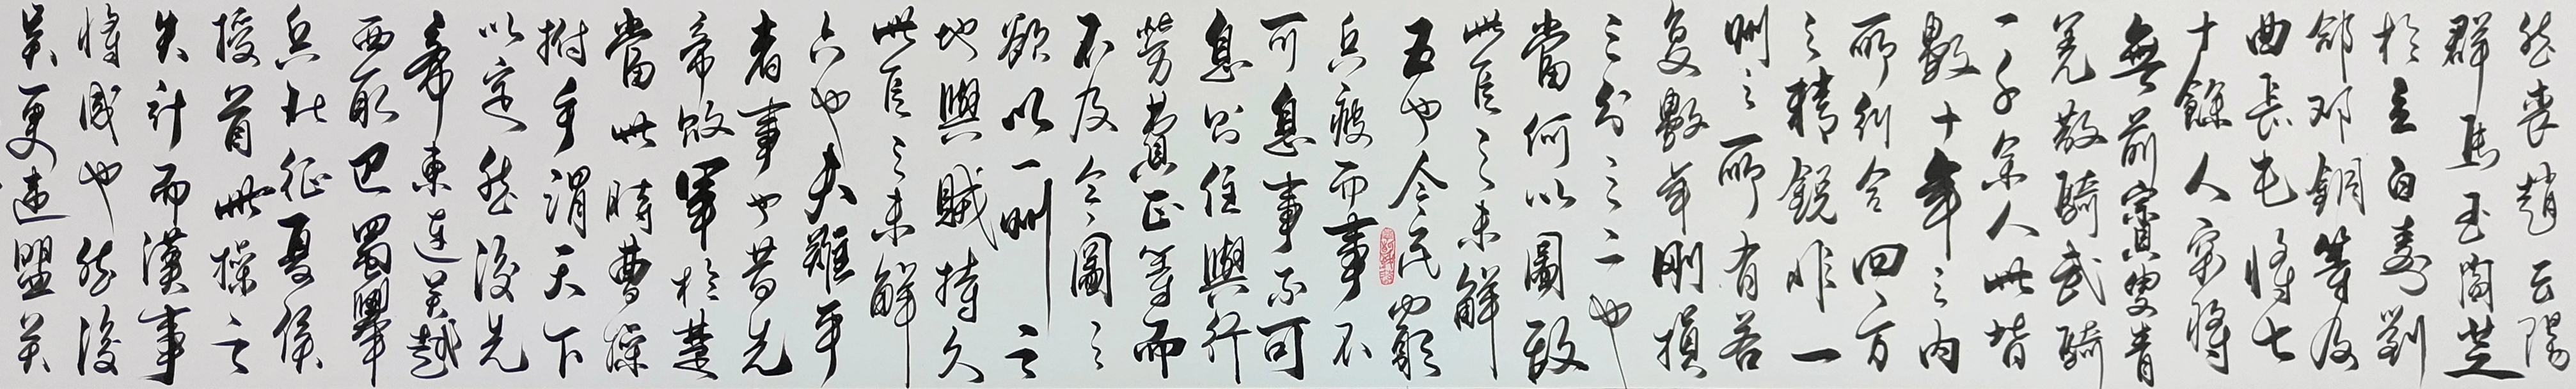 然喪趙云陽
群馬玉閻芝
於立白壽劉
郃邓銅等及
曲長屯將七
十餘人突將
無前賨叟青
羌散騎武騎
一千余人此皆
數十年之內
所糾合四方
之精銳非一
州之所有若
復數年則損
三分之二也
當何以圖敵
此臣之未解
五也今民窮
兵疲而事不
可息事不可
息則住與行
勞費正等而
不及今圖之
欲以一州之
地與賊持久
此臣之未解
六也夫難平
者事也昔先
帝敗軍於楚
當此時曹操
拊手謂天下
以定然後先
帝東連吳越
西取巴蜀舉
兵北征夏侯
授首此操之
失計而漢事
將成也然後
吳更違盟關